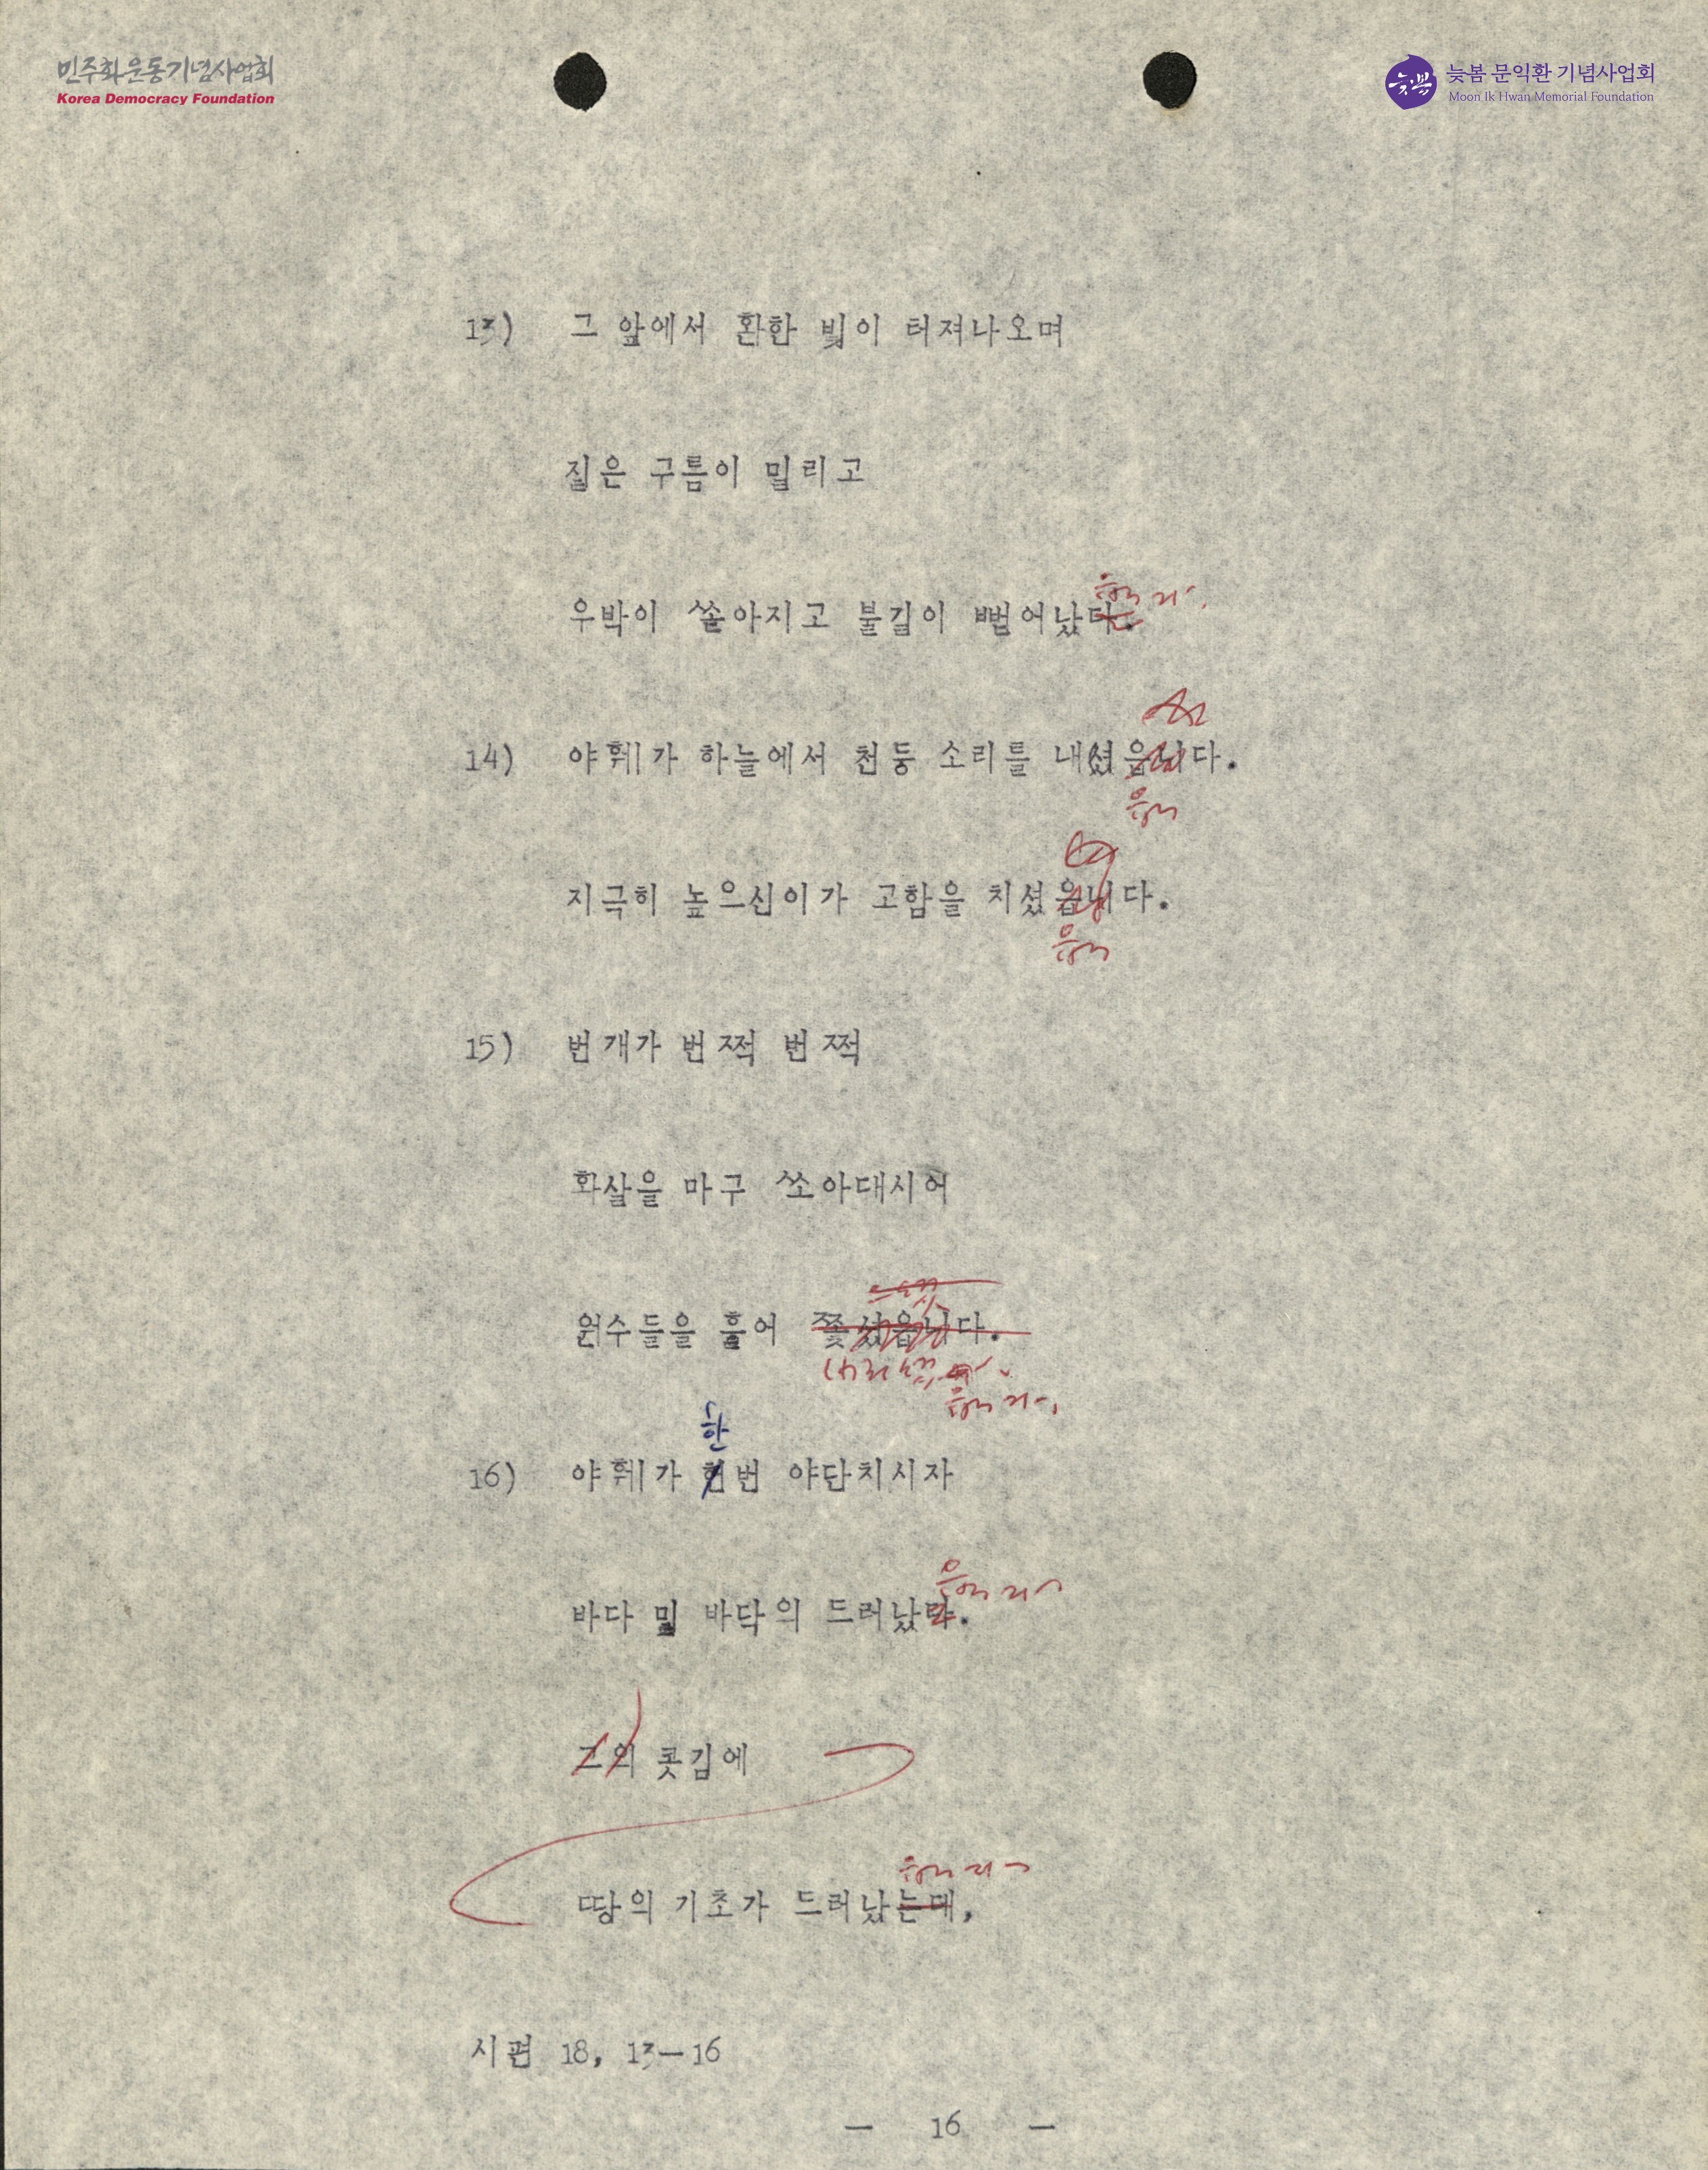 민주화운동기념사업회
Korea Democracy Foundation
늦봄
늦봄 문익환 기념사업회
Moon Ik Hwan Memorial Foundation
13) 그 앞에서 환한 빛이 터져나오며
짙은 구름이 밀리고
우박이 쏟아지고 불길이 뻗어났다.
14) 야훼가 하늘에서 천둥 소리를 내셨읍니다.
지극히 높으신이가 고함을 치셨읍니다.
15) 번개가 번쩍 번쩍
화살을 마구 쏘아대시어
원수들을 흩어 쫓셨읍니다.
한
16) 야훼가 헌번 야단치시자
바다 밑 바닥의 드러났다.
그의 콧김에
땅의 기초가 드러났는데,
시편 18, 13—16
— 16 —